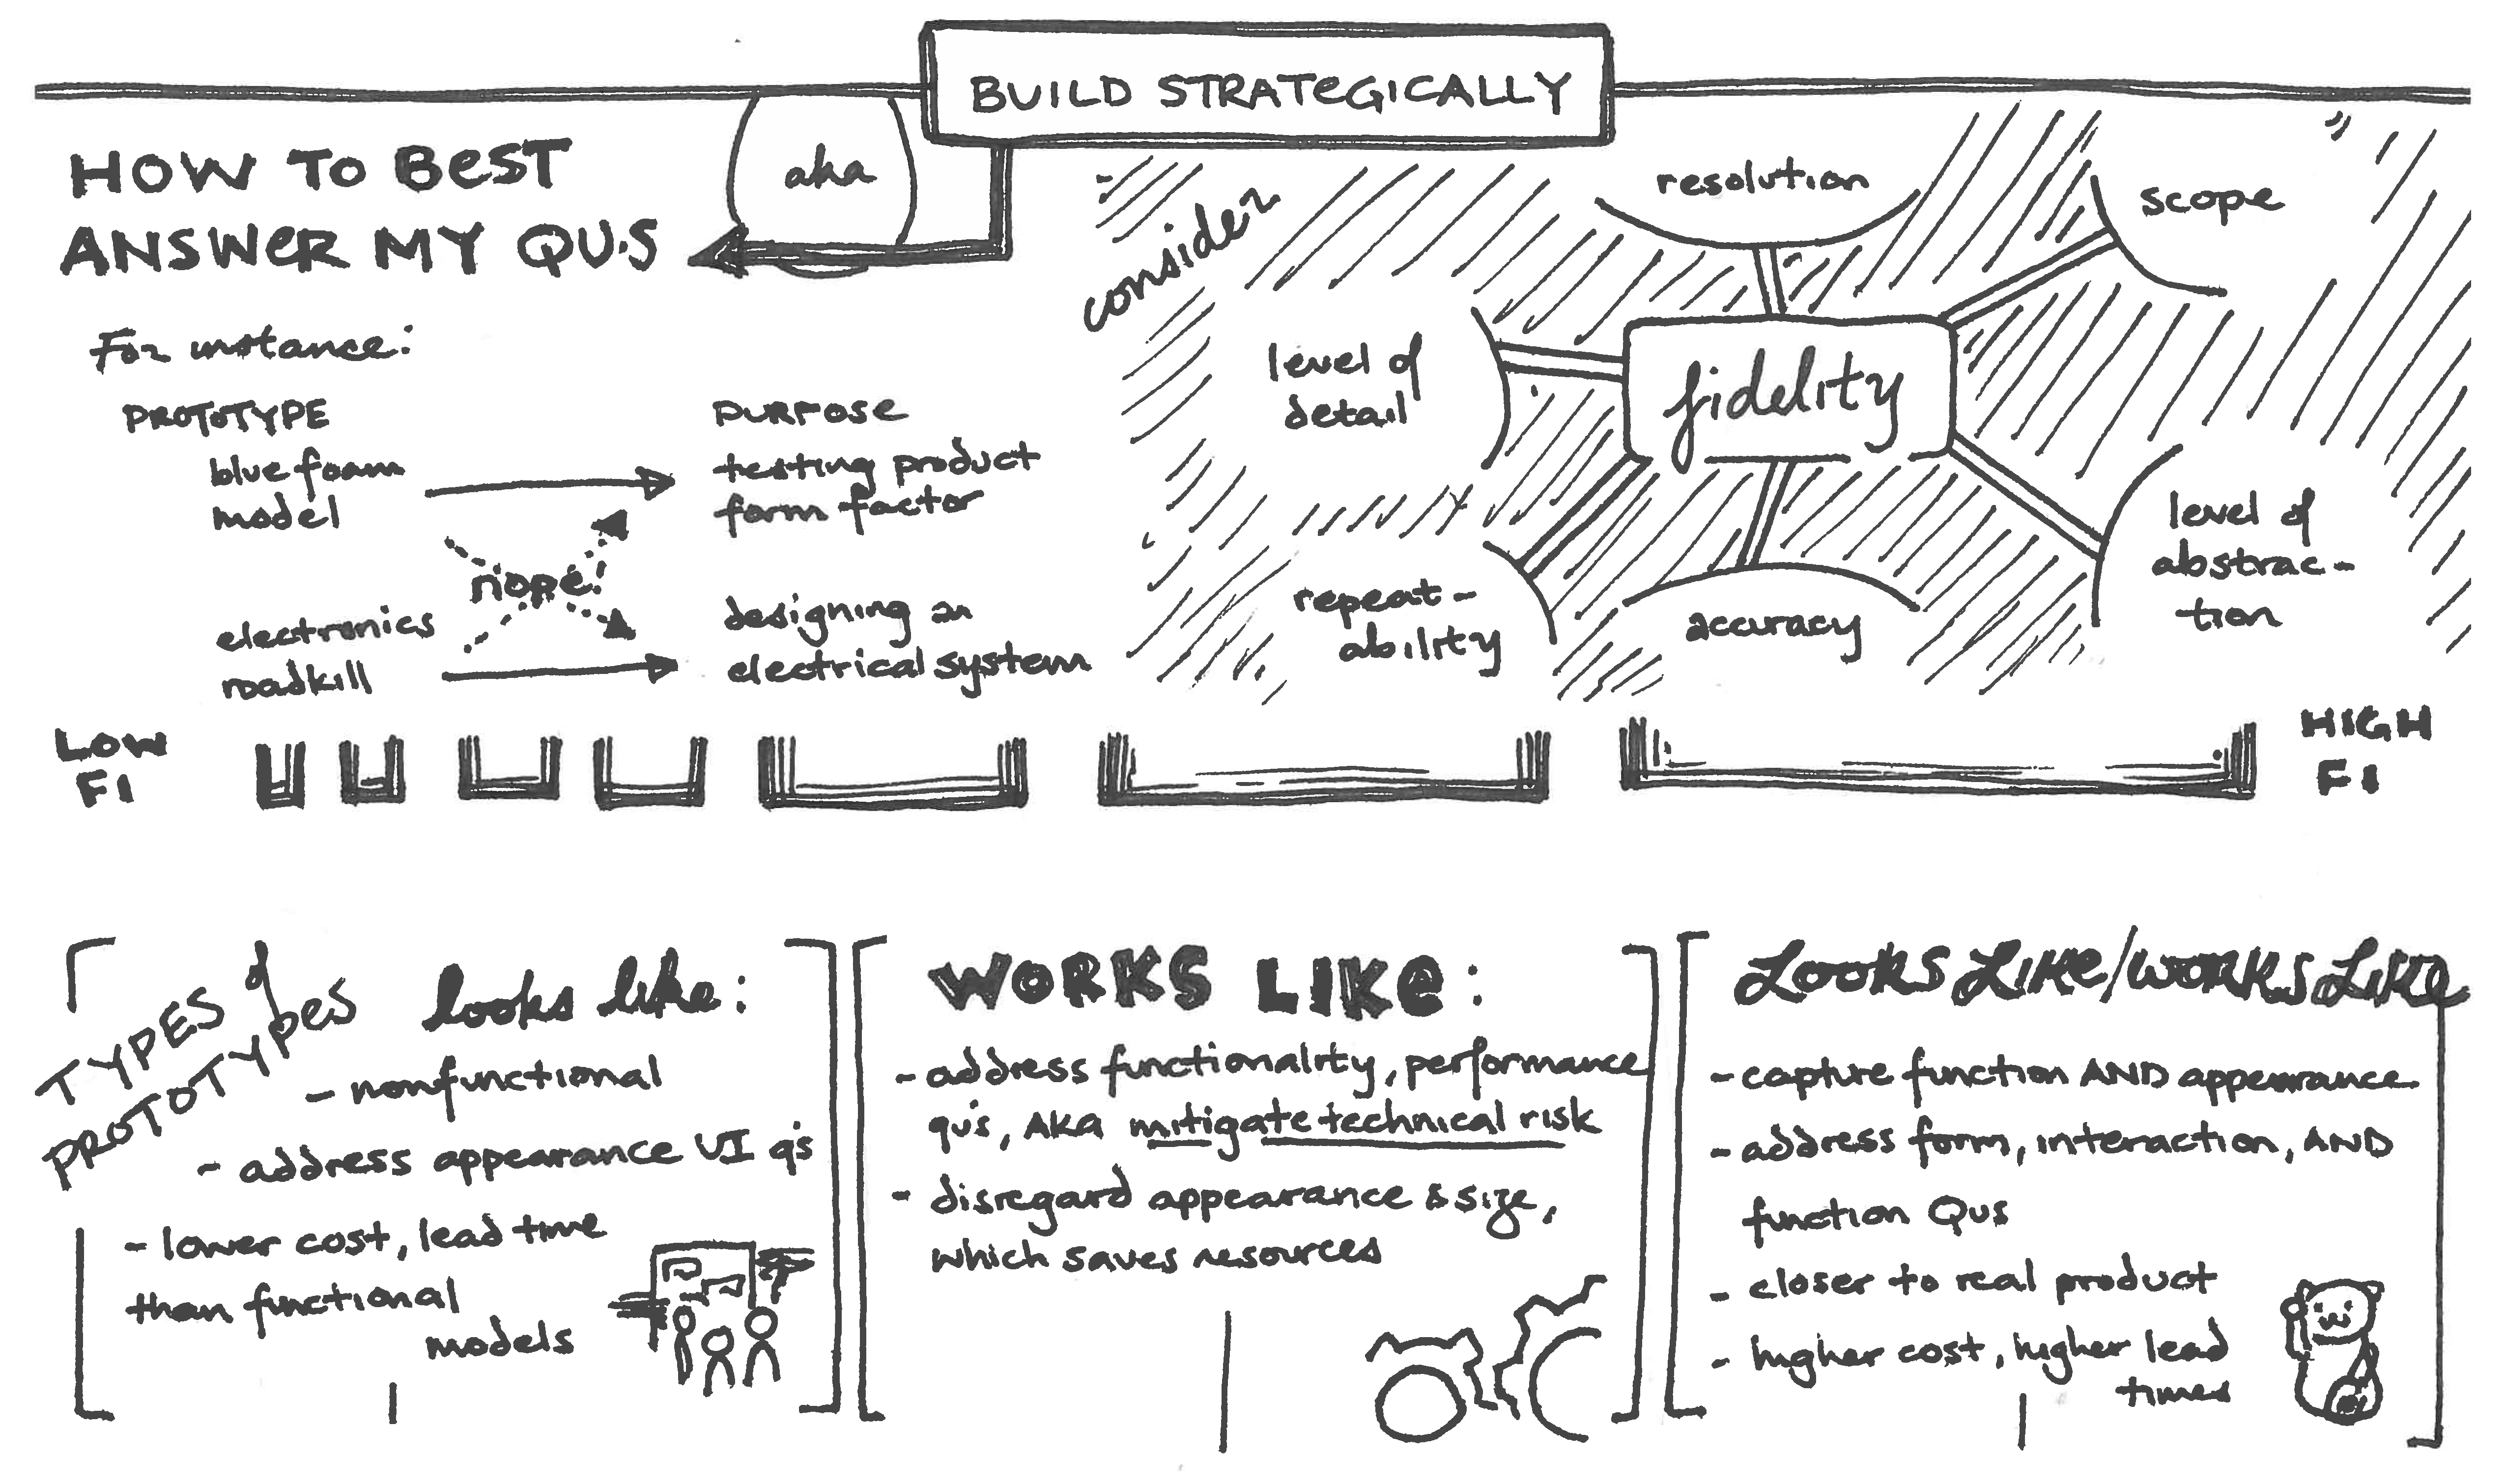 BUILD STRATEGICALLY
aka
HOW TO BEST
ANSWER MY QU'S
For instance:
PROTOTYPE
blue foam
model
electronics
roadkill
nope!
PURPOSE
testing product
form factor
designing an
electrical system
consider
fidelity
resolution
scope
level of
detail
level of
abstrac-
tion
repeat-
ability
accuracy
LOW
FI
HIGH
FI
TYPES of
PROTOTYPES
looks like:
- nonfunctional
- address appearance UI q's
- lower cost, lead time
than functional
models
WORKS LIKE:
- address functionality, performance
qu's, AKA mitigate technical risk
- disregard appearance & size,
which saves resources
LOOKS LIKE/WORKS LIKE
- capture function AND appearance
- address form, interaction, AND
function Qus
- closer to real product
- higher cost, higher lead
times